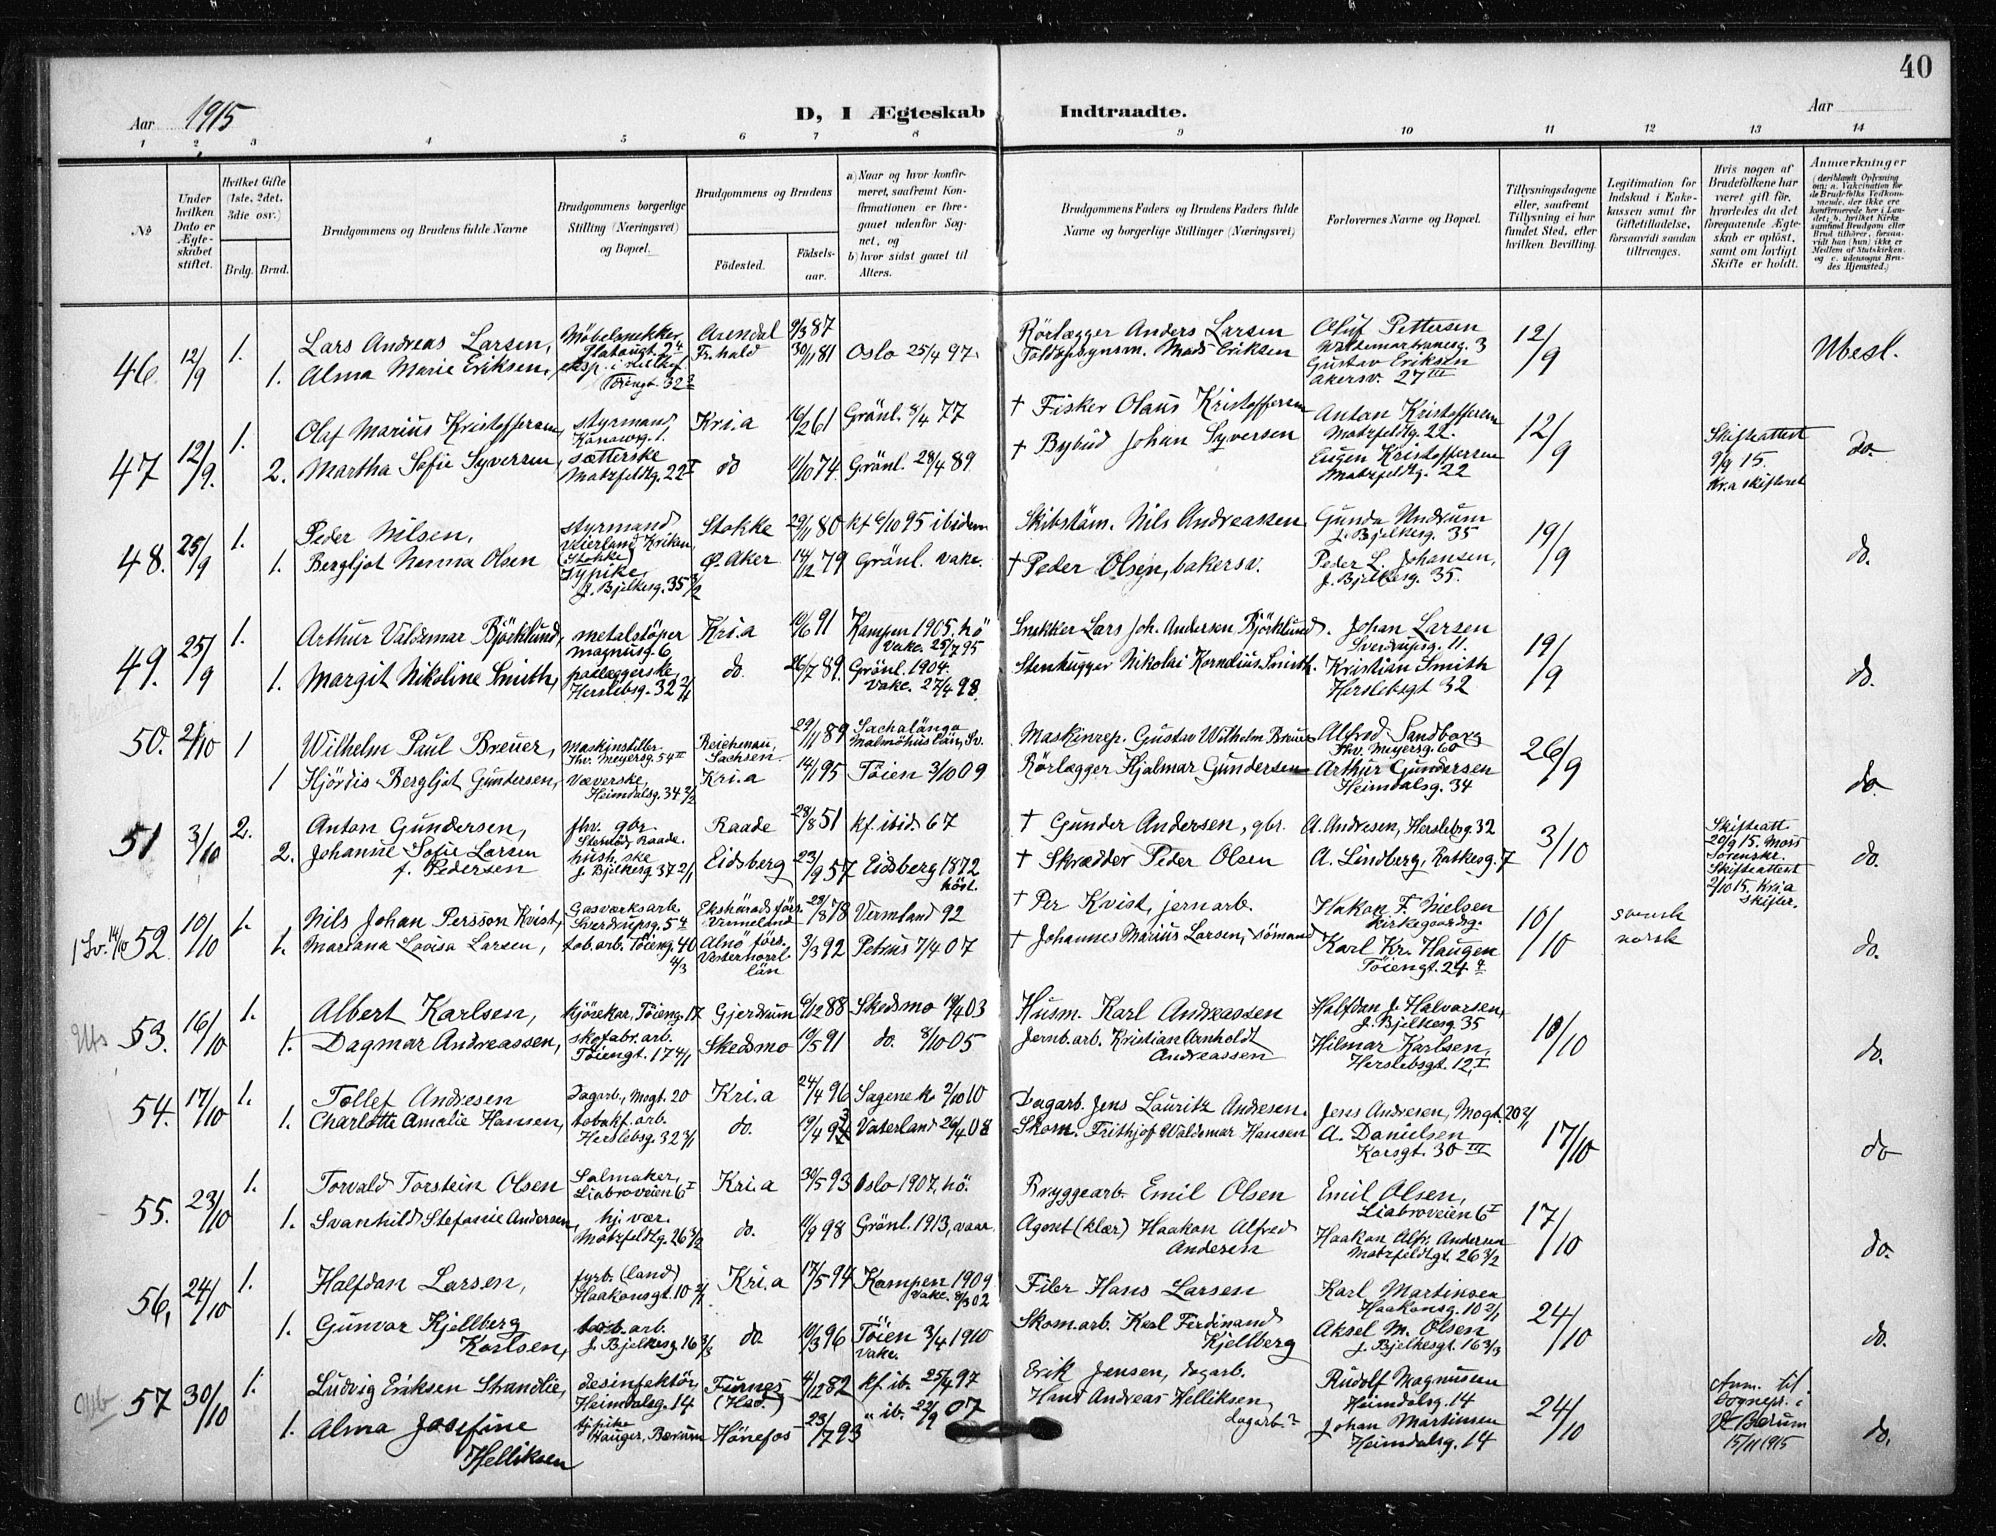 40
Aar 1915
D, I Ægteskab Indtraadte.
Aar
1 2 3 4 5 6 7 8 9 10 11 12 13 14
No
Under hvilken Dato er Ægteskabet stiftet.
Hvilket Gifte (1ste, 2det, 3die osv.)
Brdg. Brud.
Brudgommens og Brudens fulde Navne
Brudgommens borgerlige Stilling (Næringsvei) og Bopæl.
Brudgommens og Brudens
Fødested. Fødselsaar.
a) Naar og hvor konfirmeret, saafremt Konfirmationen er foregaaet udenfor Sognet, og
b) hvor sidst gaaet til Alters.
Brudgommens Faders og Brudens Faders fulde Navne og borgerlige Stillinger (Næringsvei)
Forlovernes Navne og Bopæl.
Tillysningsdagene eller, saafremt Tillysning ei har fundet Sted, efter hvilken Bevilling.
Legitimation for Indskud i Enkekassen samt for Giftetilladelse, forsaavidt saadan tiltrænges.
Hvis nogen af Brudefolkene har været gift før, hvorledes da det foregaaende Ægteskab er opløst, samt om lovligt Skifte er holdt.
Anmærkninger
(deriblandt Oplysning om: a. Vakcination for de Brudefolks Vedkommende, der ikke ere konfirmerede her i Landet; b. hvilket Kirkesamfund Brudgom eller Brud tilhører, forsaavidt han (hun) ikke er Medlem af Statskirken, og c. udensogns Brudes Hjemsted.)
46. 12/9 1. Lars Andreas Larsen, Møbelsnekker Arendal 9/3 87 Rörlægger Anders Larsen Oluf Pettersen 12/9 Ubesl.
Waldemarthranesg. 3
1. Alma Marie Eriksen, Töiengt. 32 Fr.hald 30/11 81 Oslo 25/4 97. Mads Eriksen Gustav Eriksen
Akersv. 27 III
47 12/9. 1. Olaf Marius Kristoffersen, styrmand Kri.a 16/2 61 Grönl. 8/4 77 † Fisker Olaus Kristoffersen Anton Kristoffersen 12/9 Skifteattest do.
Motzfeldtg. 22.
2. Martha Sofie Syversen, sætterske do 11/10 74. Grönl. 28/4 89 † Bybud Johan Syversen Eugen Kristoffersen 9/9 15.
Motzfeldtg. 22 I Motzfeldtg. 22 Kr.a skifteret
48. 25/9 1. Peder Nilsen, styrmand Stokke 29/11 80 kf 6/10 95 ibidem Nils Andreassen Gunda Undrum 19/9 do.
(Stokke) J. Bjelkesg. 35
1. Bergljot Nanna Olsen sypike, Ø. Aker 14/2 79 Grönl. vake. † Peder Olsen, bakersv. Peder L. Johansen,
J. Bjelkesg. 35 3/2 J. Bjelkesg. 35.
49. 25/9 1. Arthur Valdemar Björklund, metalstöper Kri.a 10/6 91 Kampen 1905. hö Snekker Lars Joh. Andersen Björklund. Johan Larsen 19/9 do.
Magnusg. 6 Vake. 25/7 95 Sverdrupsg. 11.
1. Margit Nikoline Smith, do. 26/7 89. Grönl. 1904. Stenhugger Nikolai Kornelius Smith. Kristian Smith
Herslebsg. 32 2/1 Vake. 27/4 98. Herslebsgt 32
50. 2/10 1 Wilhelm Paul Breuer, Maskinstiller Reichenau, 29/11 89 Maskinrep. Gustav Wilhelm Breuer Alfred Sandborg 26/9 do.
Thv. Meyersg. 54 II Sachsen. Malmöhuslän, Sv. Thv. Meyersg. 60
1 Hjördis Bergljot Gundersen, væverske, Kri.a 14/1 95 Töien 3/10 09 Rörlægger Hjalmar Gundersen Arthur Gundersen
Heimdalsg. 34 2/2 Heimdalsg. 34
51 3/10 2. Anton Gundersen, fhv. gbr. Raade 28/8 51 kf. ibid. 67 † Gunder Andersen, gbr. A. Andresen, Herslebsg. 32 3/10 Skifteatt. do.
Raade. 20/9 15. Moss
2. Johanne Sofie Larsen hush.ske Eidsberg 23/9 57 Eidsberg 1872 † Skrædder Peder Olsen A. Lindberg, Ratkesg. 7 Sorenskr.
f. Pedersen J. Bjelkesg. 37 2/1 höst. Skifteattest
2/10 15. Kri.a skifter.
1 Sv. 14/10 52. 10/10 1. Nils Johan Persson Kvist, Gasværksarb. Ekshärads förs. 23/8 78 Vermland 92 † Per Kvist, jernarb. Hakon F. Nielsen 10/10 svensk do.
Sverdrupsg. 5 Vermeland
1. Mariana Lovisa Larsen, tob.arb. Töieng. 40 4/3 Alnö förs. 3/3 92 Petrus 7/4 07 † Johannes Marius Larsen, sömand Karl Kr. Haugen norsk
Vesternorrl. län Töiengt. 24
53. 16/10 1. Albert Karlsen, kjörekar, Töieng. 17 Gjerdrum 6/12 88 Skedsmo 19/4 03 Husm. Karl Andreassen Halfdan J. Halvorsen, 10/10 do.
J. Bjelkesg. 35
1. Dagmar Andreassen, skofabr.arb. Skedsmo 10/5 91 do. 8/10 05 Jernb.arb. Kristian Arnholdt Andreassen Hilmar Karlsen,
Töiengt. 17 4/1 Herslebsgt. 12, I
54. 17/10 1. Tollef Andresen Dagarb., Mogt. 20 Kri.a 24/4 96 Sagene k. 2/10 10 Dagarb. Jens Lauritz Andresen. Jens Andresen, Mogt. 20 3/1 17/10 do
1. Charlotte Amalie Hansen, tobakf.arb. do. 19/4 93 Vaterland 26/4 08 Skom. Frithjof Waldemar Hansen A. Danielsen
Herslebsg. 32 3/1 Korsgt. 30 III
55. 23/10 1. Torvald Torstein Olsen Salmaker, Kri.a 30/5 93 Oslo 1907, hö. Bryggearb. Emil Olsen Emil Olsen, 17/10 do.
Liabroveien 6 I Liabroveien 6 I
1. Svanhild Stefanie Andersen, hj. vær. do. 11/9 98 Grönl. 1913, vaar. Agent (klær) Haakon Alfred Andersen Haakon Alfr. Andersen
Motzfeldtg. 26 3/2 Motzfeldtgt. 26 3/2
56. 24/10 1. Halfdan Larsen, fyrb. (land) Kri.a 17/5 94 Kampen 1909 Filer Hans Larsen Karl Martinsen 24/10 do.
Haakonsgt. 10 2/1 Vake. 8/3 02 Haakonsg. 10 2/1
1. Gunvor Kjellberg Karlsen, tob.arb. do. 10/3 96 Töien 3/4 1910 Skom.arb. Karl Ferdinand Kjellberg Aksel M. Olsen
J. Bjelkesg. 16 3/3 Vake. J. Bjelkesgt. 16 3/3
57 30/10 1. Ludvig Eriksen Strandlie, desinfektör, Furnes 4/12 82 kf. ib. 27/4 97 Erik Jensen, dagarb. Rudolf Magnusen 24/10 Anm. til do.
Heimdalsg. 14 (Hed.) Heimdalsg. 14 sognepr. i
1. Alma Josefine Helliksen Hauger, Bærum Hönefos 23/7 93 " ib. 22/9 07 Hans Andreas Helliksen, dagarb.? Johan Martinsen V. Bærum
Heimdalsg. 14 15/11 1915